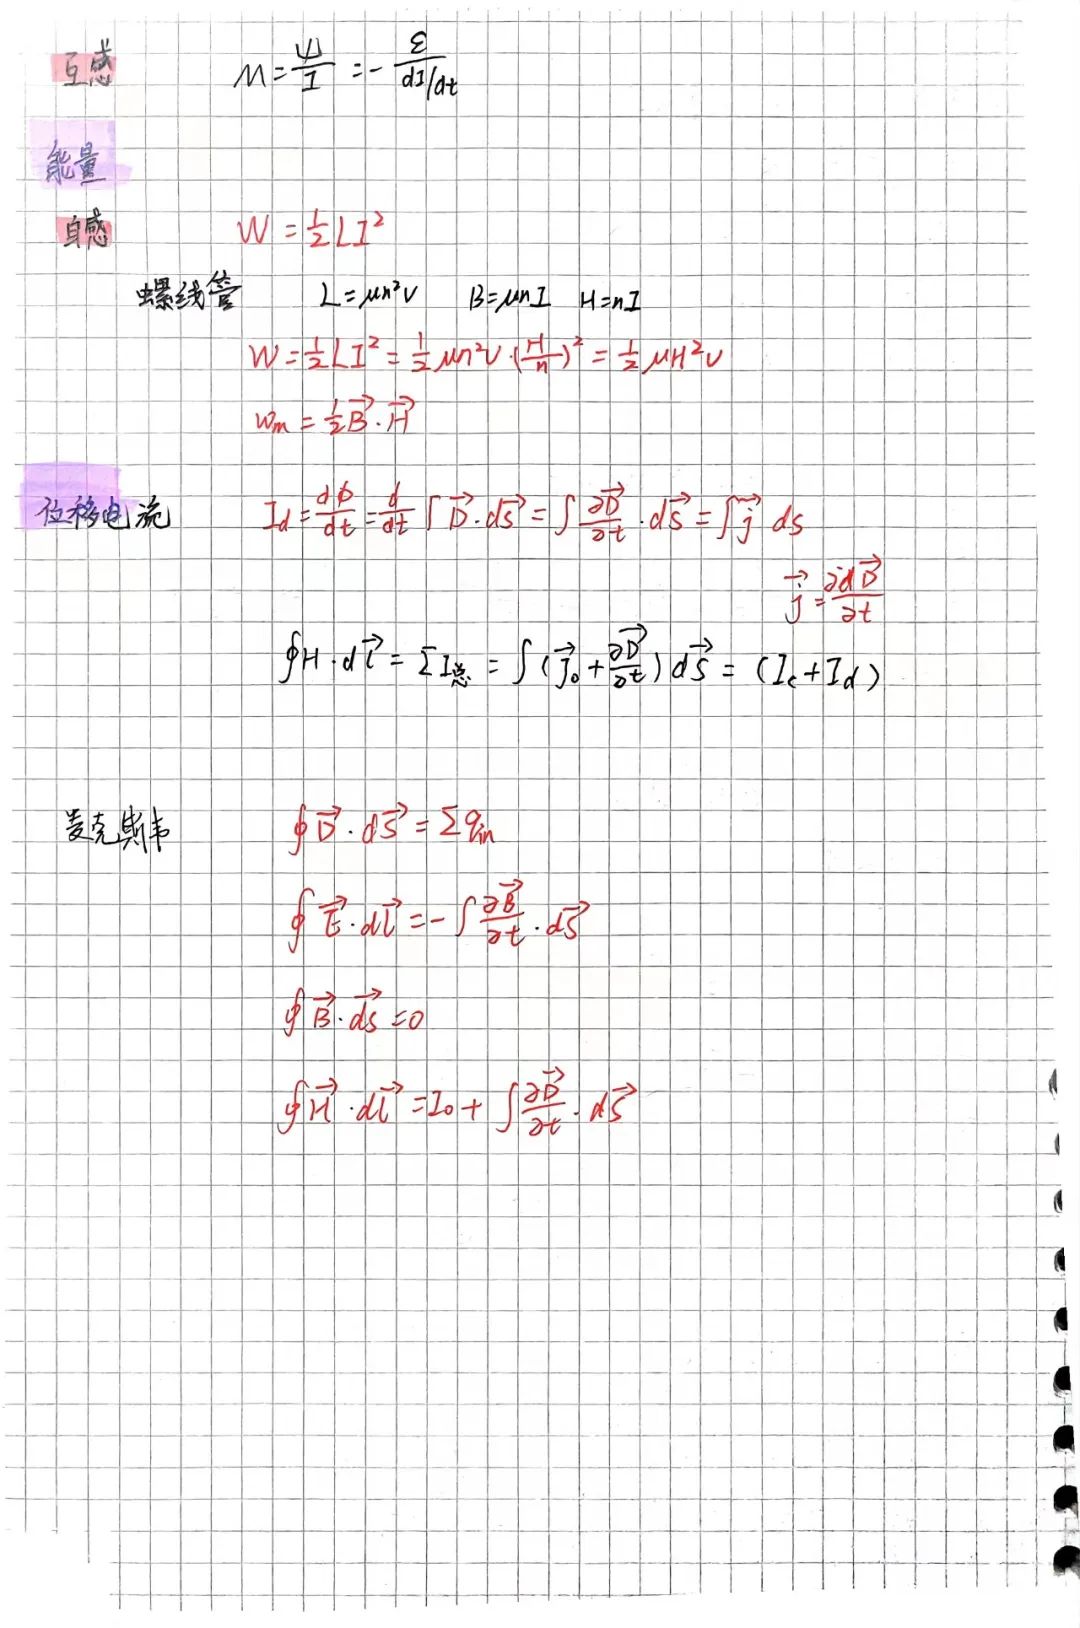 互感 M=Ψ/I=-ε/(dI/dt)
能量
自感 W=½LI²
螺线管 L=μn²V B=μnI H=nI
W=½LI²=½μn²V·(H/n)²=½μH²V
wₘ=½B⃗·H⃗
位移电流 I_d=dϕ/dt=d/dt∫D⃗·dS⃗=∫∂D⃗/∂t·dS⃗=∫j⃗ ds
j⃗=∂dD⃗/∂t
∮H·dl⃗=ΣI总=∫(J⃗₀+∂D⃗/∂t)dS⃗=(I_c+I_d)
麦克斯韦 ∮D⃗·dS⃗=Σq_in
∮E⃗·dl⃗=-∫∂B⃗/∂t·dS⃗
∮B⃗·dS⃗=0
∮H⃗·dl⃗=I₀+∫∂D⃗/∂t·dS⃗